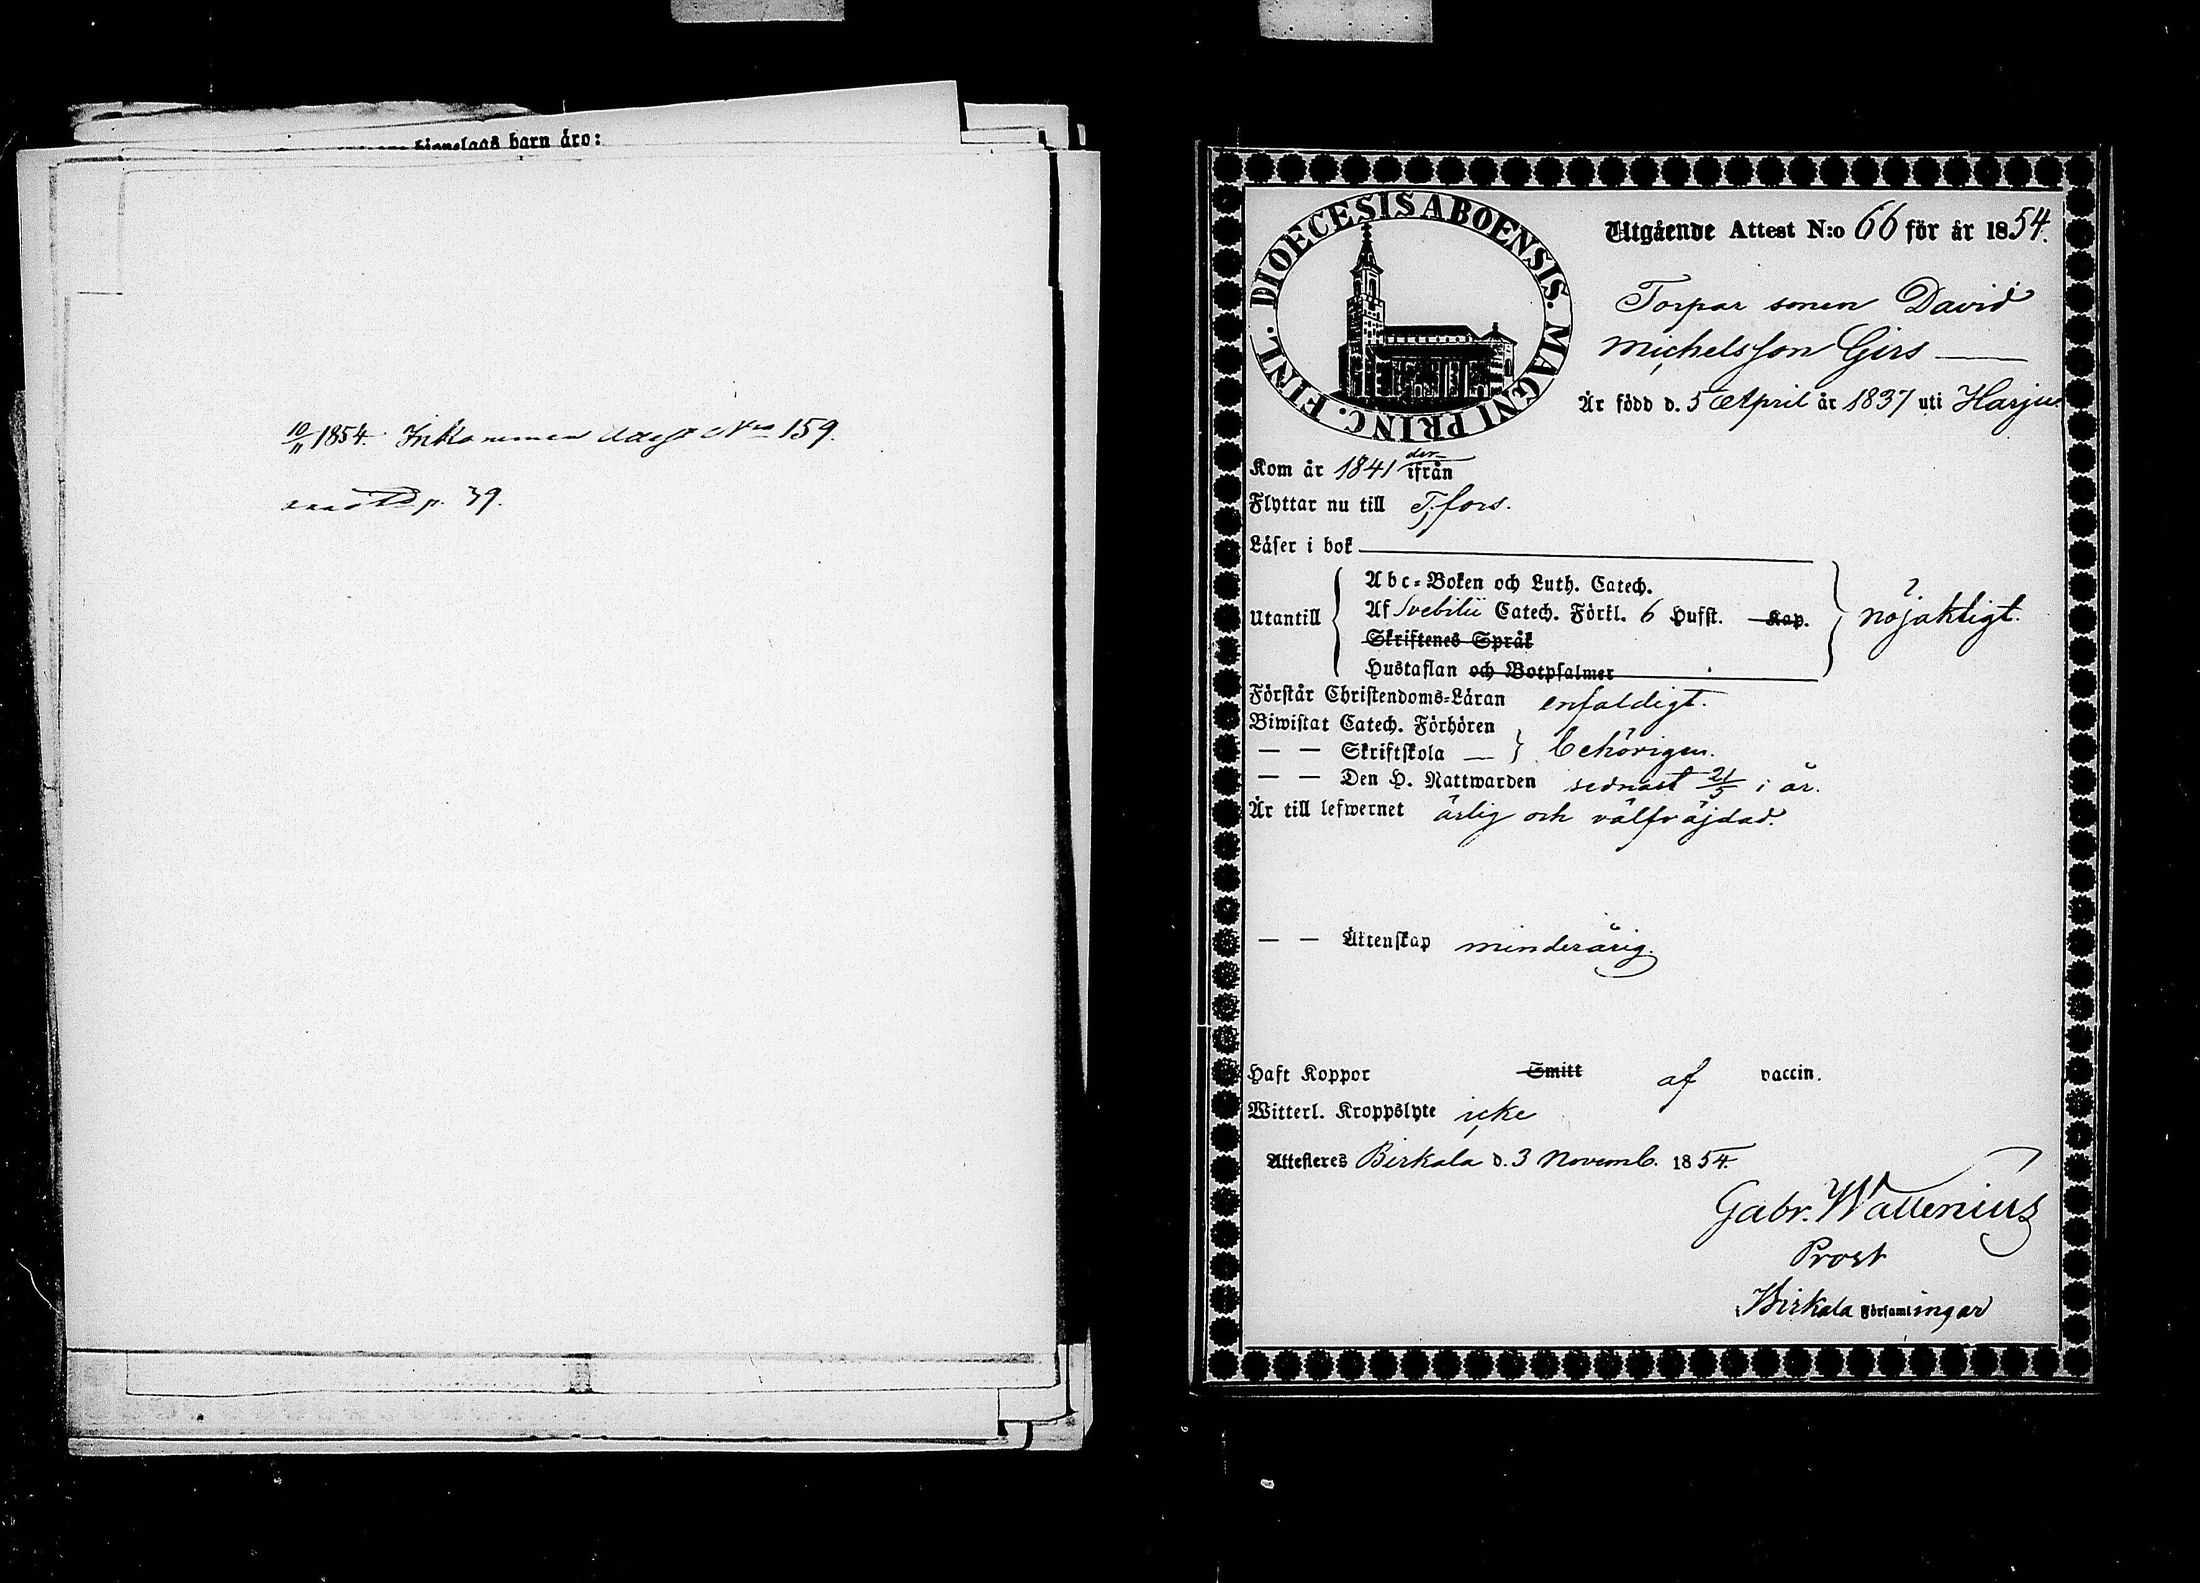 hionelags barn äro:
10/11 1854. Inkommen Attest Nro 159.
p. 39.
DIOECESIS ABOENSIS. MAGNI PRINC. FINL.
Utgående Attest N:o 66 för år 1854.
Torpar sonen David
Michelsson Girs
Är född d. 5 April år 1837 uti Harju
Kom år 1841 der- ifrån
Flyttar nu till T;fors.
Läser i bok
Utantill
Abc-Boken och Luth. Catech.
Af Svebilii Catech. Förkl. 6 Hufst. Kap.
Skriftenes Språk
Hustaflan och Botpsalmer
nöjaktigt.
Förstår Christendoms-Läran enfaldigt.
Biwistat Catech. Förhören
— — Skriftskola — } behörigen.
— — Den H. Nattwarden sednast 21/5 i år.
Är till lefwernet ärlig och välfräjdad.
— — Äktenskap minderårig.
Haft Koppor Smitt af vaccin.
Witterl. Kroppslyte icke
Attesteres Birkala d. 3 Novemb. 1854.
Gabr. Wallenius
Prost
i Birkala Församlingar